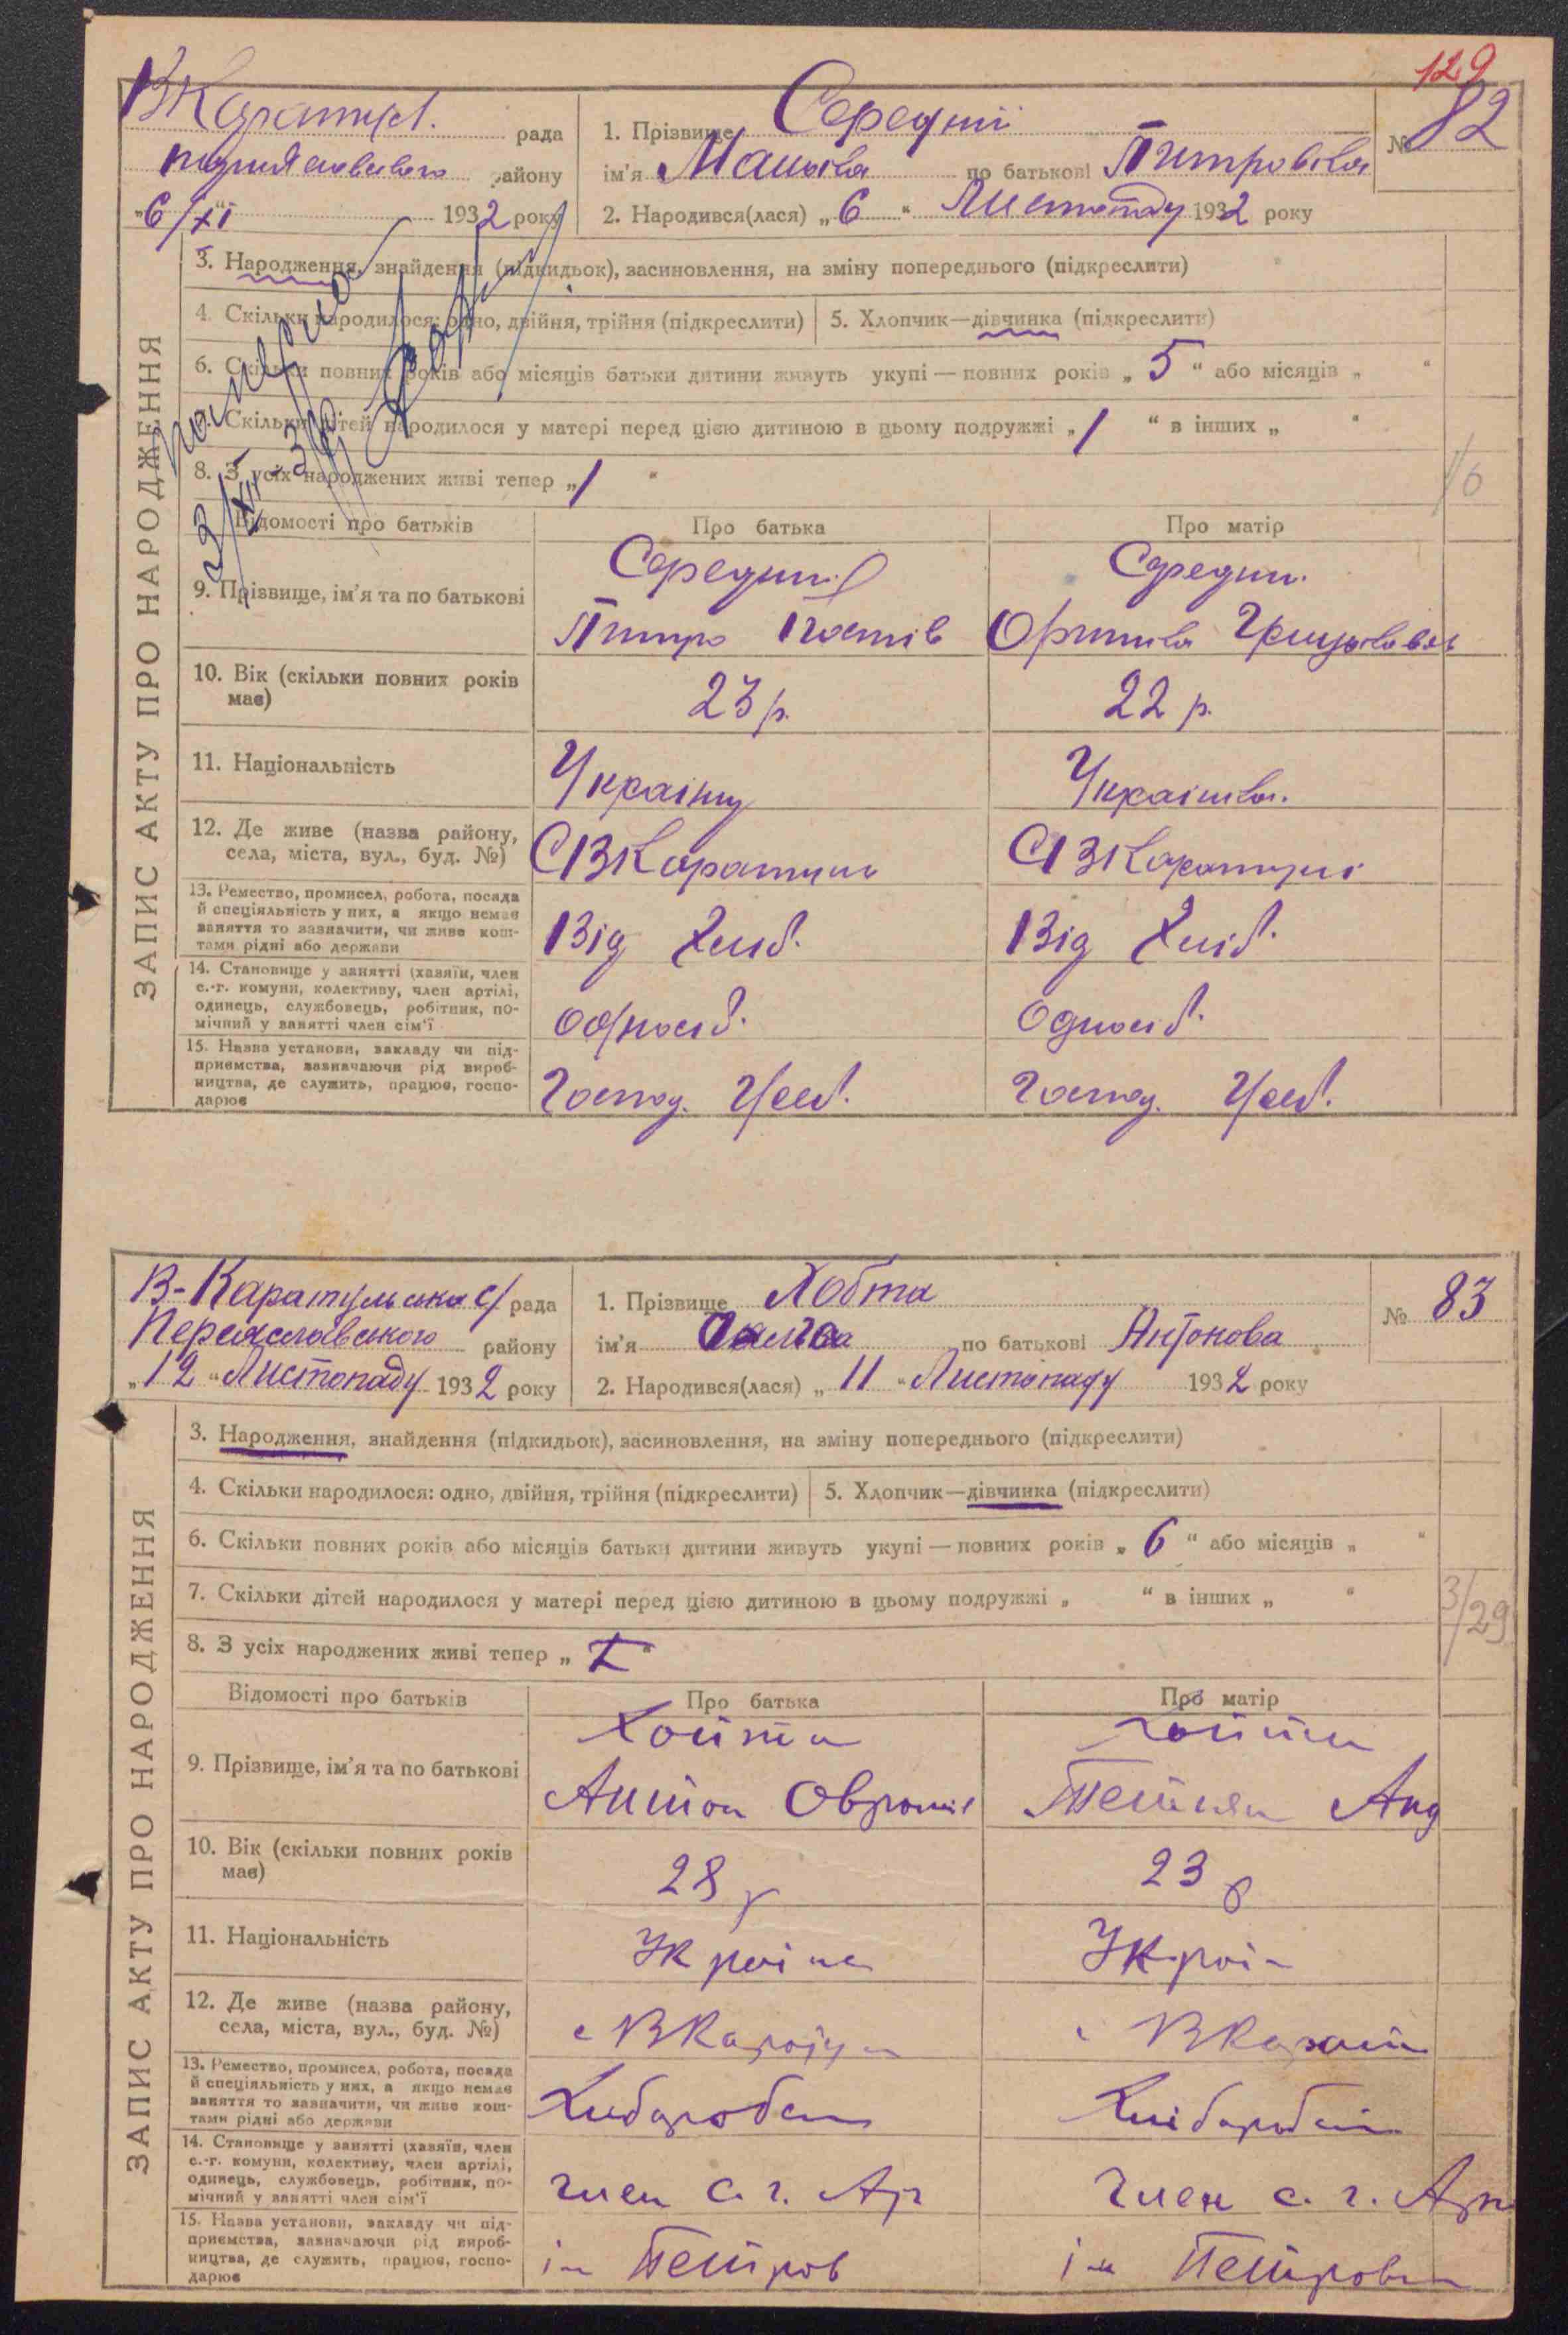 129
ВКаратул. рада
району
"6/XI 1932 року
1. Прізвище Середній
№ 82
ім'я по батькові
2. Народився(лася) „ 6 " Листопаду 1932 року
ЗАПИС АКТУ ПРО НАРОДЖЕННЯ
3. Народження, знайдення (підкидьок), засиновлення, на зміну попереднього (підкреслити)
4. Скільки народилося: одно, двійня, трійня (підкреслити) 5. Хлопчик—дівчинка (підкреслити)
6. Скільки повних років або місяців батьки дитини живуть укупі — повних років „ 5 " або місяців „ "
7. Скільки дітей народилося у матері перед цією дитиною в цьому подружжі „ 1 " в інших „ "
8. З усіх народжених живі тепер „ 1 "
Відомості про батьків Про батька Про матір
9. Прізвище, ім'я та по батькові
10. Вік (скільки повних років має) 23 р. 22 р.
11. Національність Українц Українка.
12. Де живе (назва району, села, міста, вул., буд. №) С ВКаратули С ВКаратулі
13. Ремество, промисел, робота, посада й спеціяльність у них, а якщо немає заняття то зазначити, чи живе коштами рідні або держави Від Хліб. Від Хліб.
14. Становище у занятті (хазяїн, член с.-г. комуни, колективу, член артілі, одинець, службовець, робітник, помічний у занятті член сім'ї Одноосіб. Одноосіб.
15. Назва установи, закладу чи підприємства, зазначаючи рід виробництва, де служить, працює, господарює Господ. Господ.
В-Каратульська с/ рада
Переяславського району
„ 12 " Листопаду 1932 року
1. Прізвище Хобта
№ 83
ім'я по батькові Антонова
2. Народився(лася) „ 11 " Листопаду 1932 року
ЗАПИС АКТУ ПРО НАРОДЖЕННЯ
3. Народження, знайдення (підкидьок), засиновлення, на зміну попереднього (підкреслити)
4. Скільки народилося: одно, двійня, трійня (підкреслити) 5. Хлопчик—дівчинка (підкреслити)
6. Скільки повних років або місяців батьки дитини живуть укупі — повних років „ 6 " або місяців „ "
7. Скільки дітей народилося у матері перед цією дитиною в цьому подружжі „ " в інших „ "
3/29
8. З усіх народжених живі тепер „ "
Відомості про батьків Про батька Про матір
Хобта Хобта
9. Прізвище, ім'я та по батькові Антон Тетяна Анд
10. Вік (скільки повних років має) 28 р 23 р
11. Національність Україне Украї
12. Де живе (назва району, села, міста, вул., буд. №) с ВКарату с ВКарат
13. Ремество, промисел, робота, посада й спеціяльність у них, а якщо немає заняття то зазначити, чи живе коштами рідні або держави Хлібороб Хлібороб
14. Становище у занятті (хазяїн, член с.-г. комуни, колективу, член артілі, одинець, службовець, робітник, помічний у занятті член сім'ї член с. г. Ар член с. г. Арт
15. Назва установи, закладу чи підприємства, зазначаючи рід виробництва, де служить, працює, господарює ім Петров ім Петров